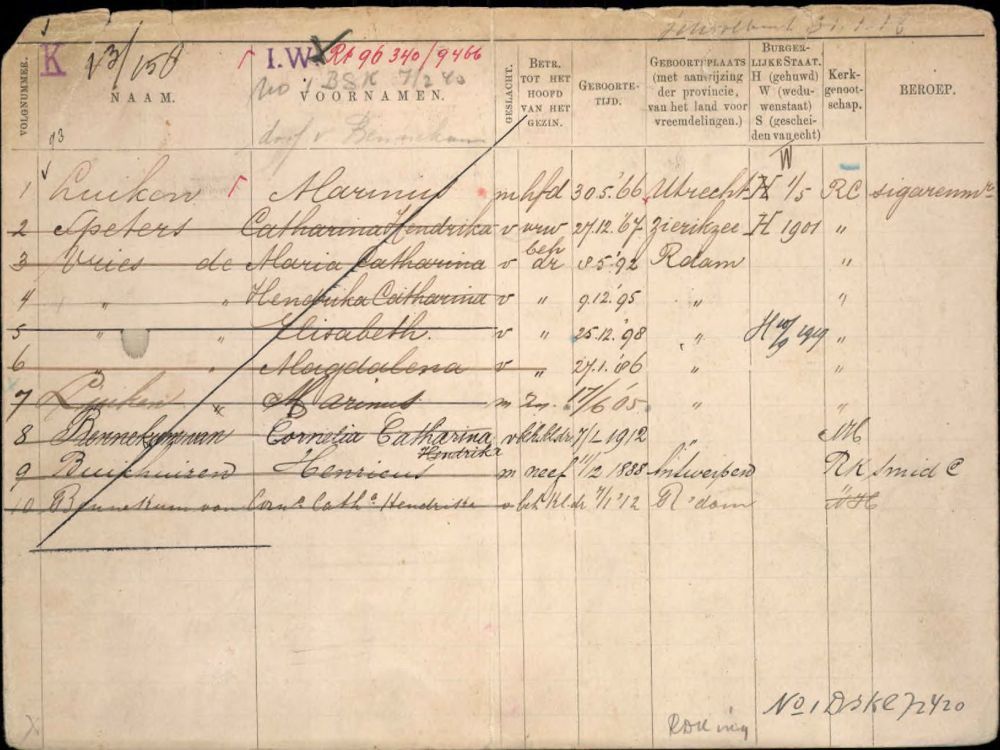 31.1.16
K 13/158 I.W. Rt 96 340/9466
No 1 BSK 7/2 40
VOLGNUMMER. NAAM. VOORNAMEN. GESLACHT. BETR. TOT HET HOOFD VAN HET GEZIN. GEBOORTE-TIJD. GEBOORTEPLAATS (met aanwijzing der provincie, van het land voor vreemdelingen.) BURGER-LIJKE STAAT. H (gehuwd) W (wedu-wenstaat) S (geschei-den van echt) Kerk-genoot-schap. BEROEP.
93 dorp v. Bennekum
W
1 Luiken Marinus m hfd 30.5.'66 Utrecht H 1/5 RC sigarenmr
2 Speters Catharina Hendrika v vrw 27.12.'67 Zierikzee H 1901 "
3 Vries de Maria Catharina v beh dr 8.5.'92 Rdam "
4 " " Hendrika Catharina v " 9.12.'95 " "
5 " " Elisabeth. v " 25.12.'98 " H 1919 "
6 " " Magdalena v " 27.1.'86 " "
7 Luiken " Marinus m zn. 17/6 '05 " "
8 Bennekum van Cornelia Catharina Hendrika v beh.kl.dr 7/1 1912 " NH
9 Buikhuizen Henricus m neef 11/12 1888 Antwerpen RK smid C
10 Bennekum van Corna Catha Hendrika v beh kl dr 7/1 '12 R'dam NH
No 1 BSK 7 2 4 20
RDK